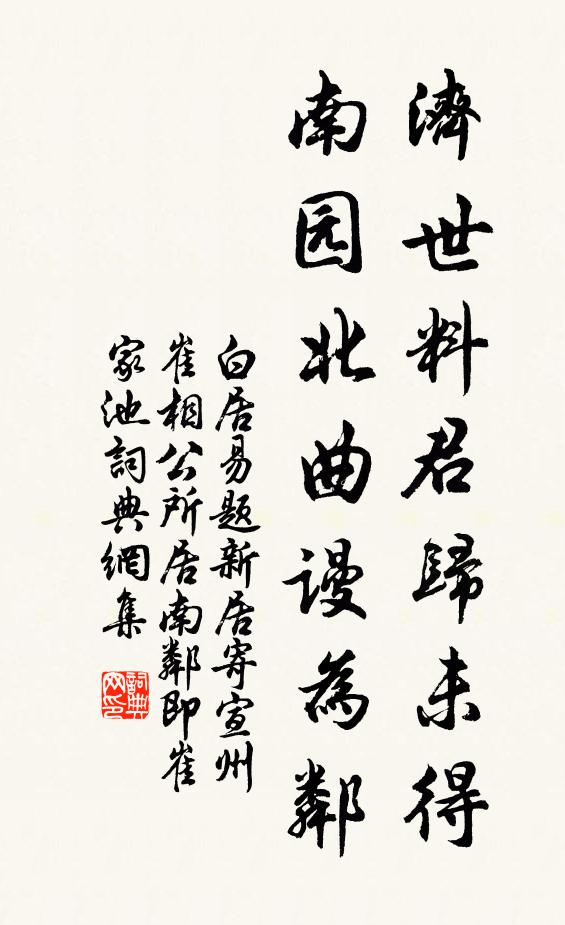 濟世料君歸未得
南园北曲谩為鄰
白居易题新居寄宣州
崔相公所居南鄰即崔
家池詞典網集
詞典网印